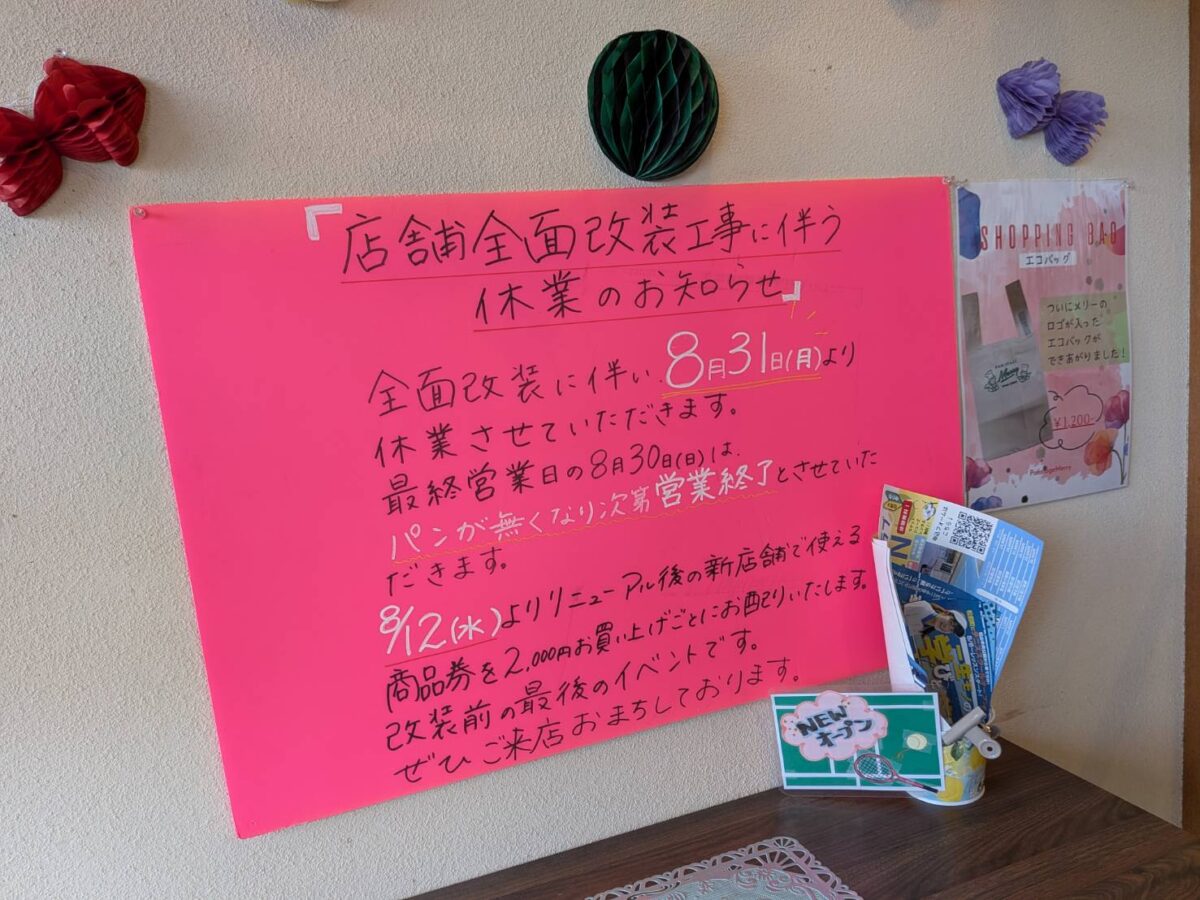 「店舗全面改装工事に伴う
休業のお知らせ」
全面改装に伴い、8月31日(月)より
休業させていただきます。
最終営業日の8月30日(日)は、
パンが無くなり次第営業終了とさせていた
だきます。
8/12(水)よりリニューアル後の新店舗で使える
商品券を2,000円お買い上げごとにお配りいたします。
改装前の最後のイベントです。
ぜひご来店おまちしております。
SHOPPING BAG
エコバッグ
ついにメリーの
ロゴが入った
エコバッグが
できあがりました!
Merry
¥1,200-
NEW
オープン